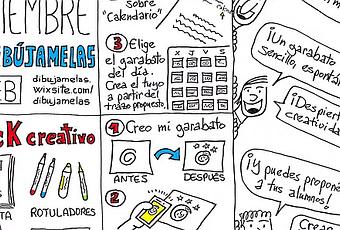 IEMBRE
BÚJAMELAS
dibujamelas.
wixsite.com/
dibujamelas
EB
CK creativo
TA
ROTULADORES
sobre
"Calendario"
4
3 Elige
el garabato
del día.
Crea el tuyo
a partir del
trazo propuesto.
X J V S
4 Creo mi garabato
ANTES
DESPUÉS
2
¡Un garabato
sencillo, espontá
¡Despier
creativida
¡Y puedes propone
a tus alumnos!
Crean